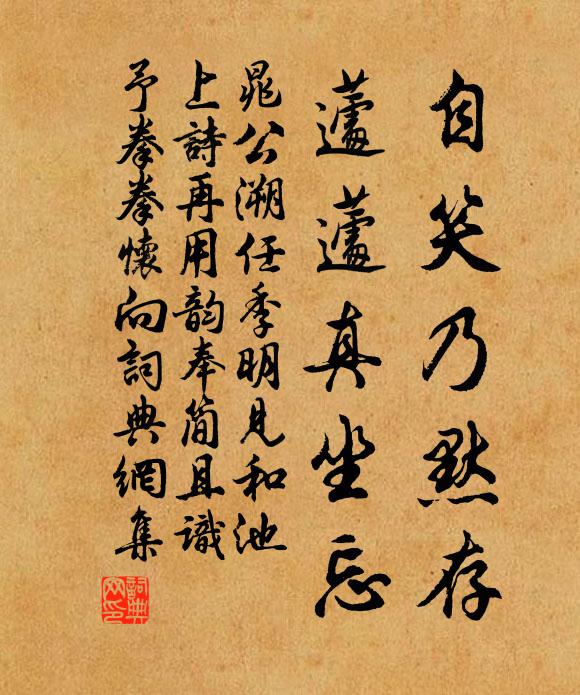 自笑乃默存
蘧蘧真坐忘
晁公溯任季明見和池
上詩再用韵奉簡且識
予拳拳懷向詞典網集
詞典
网印